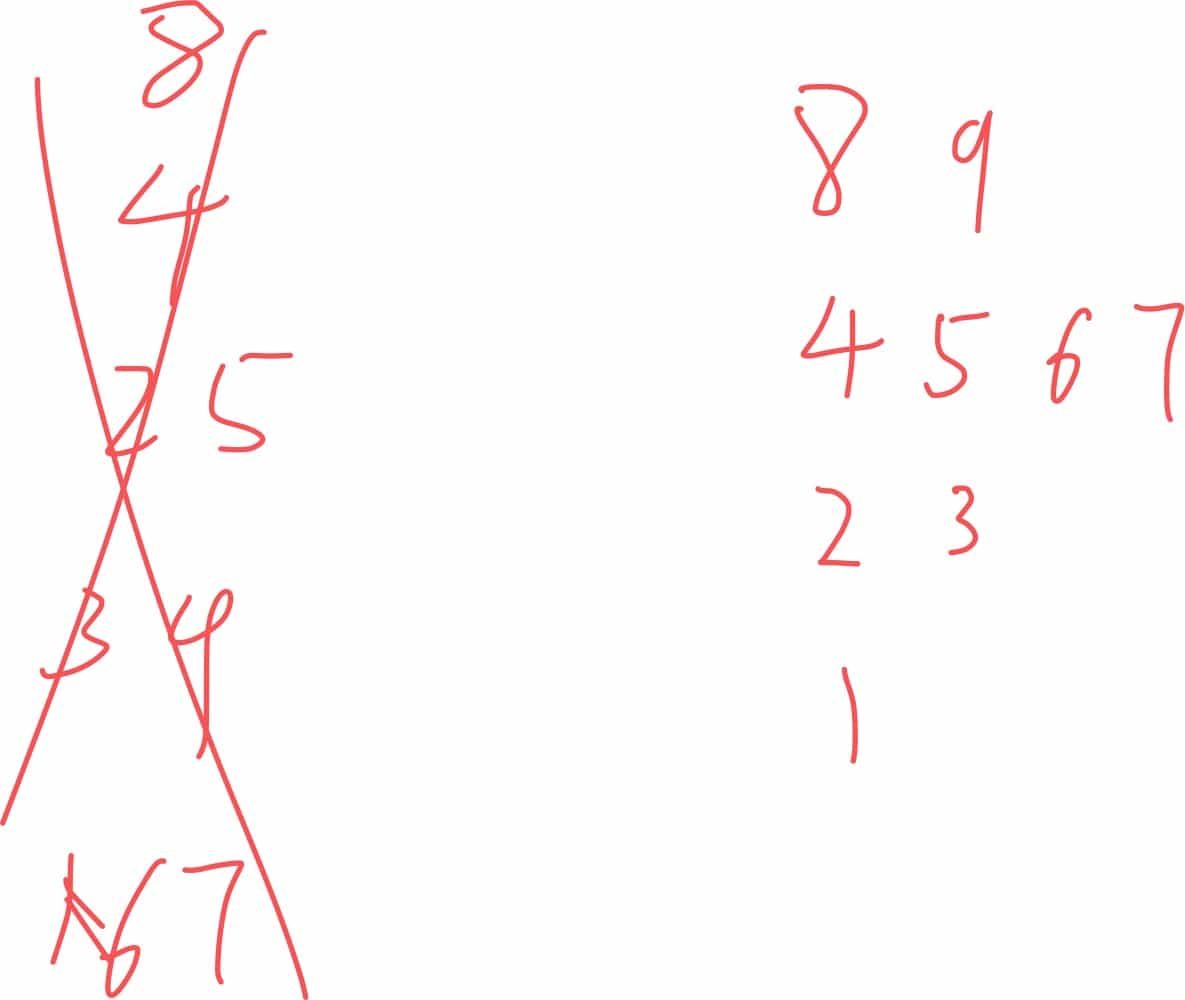 8
4
2 5
3 9
1 6 7
8 9
4 5 6 7
2 3
1